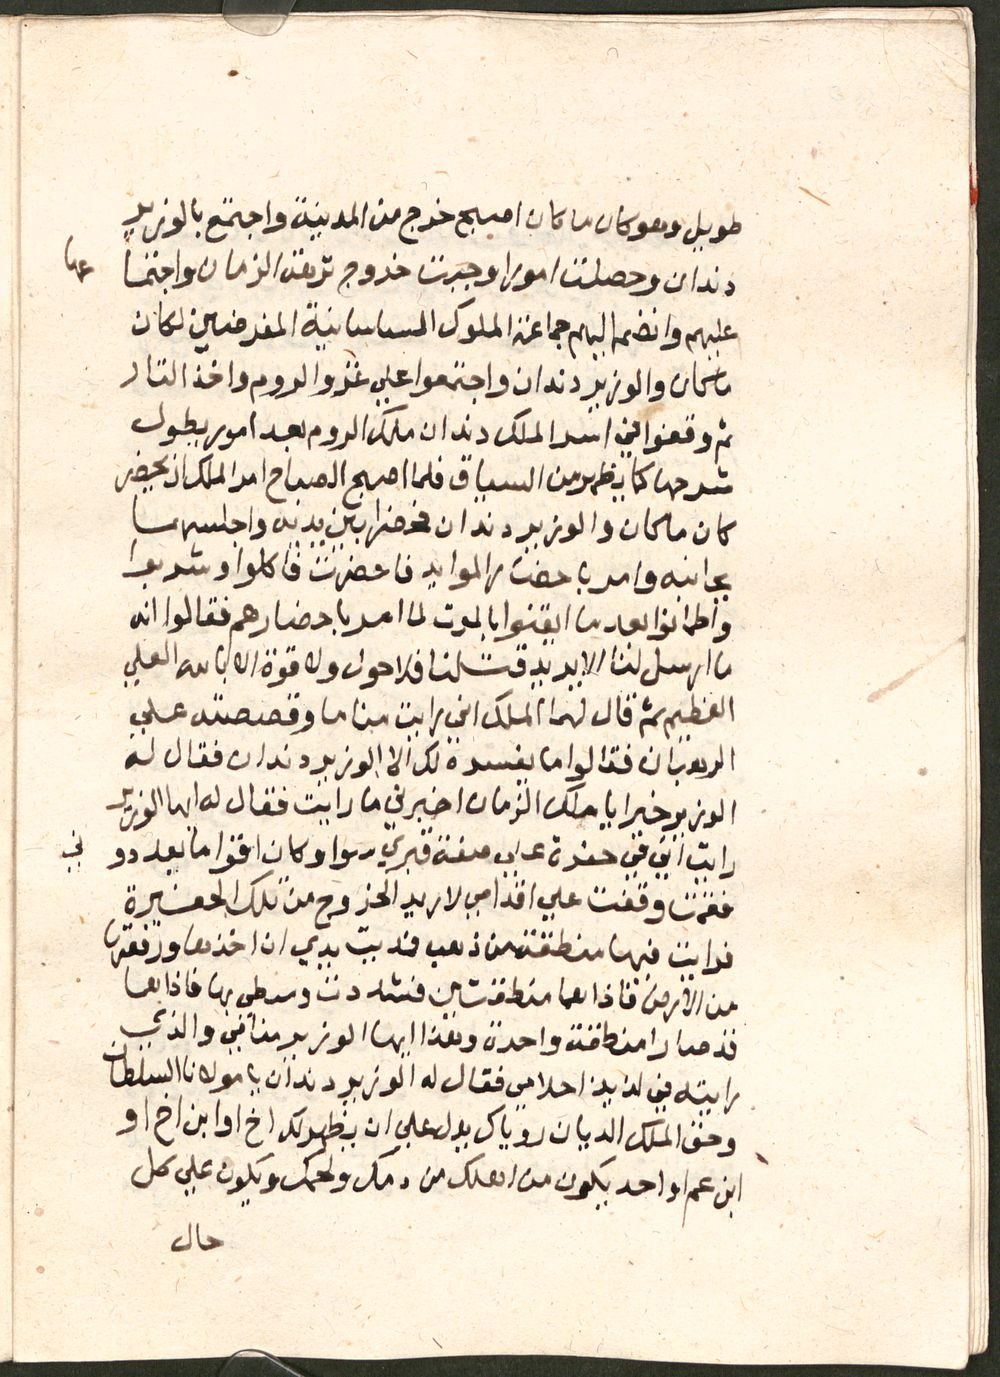 طويل وهو كان ما كان اصبح خرج من المدينة واجتمع بالوزير
دندان وحصلت امورا وجرت خروج نزهة الزمان واجتما
عها
عليهم وانضم اليهم جماعة الملوك الساسانية المفرضين لكان
ماكان والوزير دندان واجتمعوا علي غزو الروم واخذ التار
ثم وقعوا في اسر الملك دندان ملك الروم بعد امور يطول
شرحها كما يظهر من السياق فلما اصبح الصباح امر الملك ان يحضر
كان ماكان والوزير دندان فحضرا بين يديه واجلسهما
بجانبه وامر باحضار الموايد فاحضرت فاكلوا وشربوا
واطمانوا بعد ما ايقنوا بالموت لما امر باحضارهم فقالوا انه
ما ارسل لنا الا يريد قتلنا فلا حول ولا قوة الا بالله العلي
العظيم ثم قال لهما الملك اني رايت مناما وقصصته علي
الرهبان فقالوا ما يفسره لك الا الوزير دندان فقال له
الوزير خيرا يا ملك الزمان اخبرني ما رايت فقال له ايها الوزير
رايت اني في حفرة علي صفة قبري سوا وكان اقواما يعددو
ني
فقمت وقفت علي اقدامي لاريد الخروج من تلك الحفيرة
فرايت فيها منطقة من ذهب فديت يدي ان اخذها ورفعتها
من الارض فاذا هما منطقتين فشددت وسطي بها فاذا هما
قد صارا منطقة واحدة وهذا ايها الوزير منامي والذي
رايته في لذيذ احلامي فقال له الوزير دندان يا مولانا السلطان
وحق الملك الديان روياك يدل علي ان يظهر لك اخ او ابن اخ او
ابن عم او احد يكون من اهلك من دمك ولحمك ويكون علي كل
حال